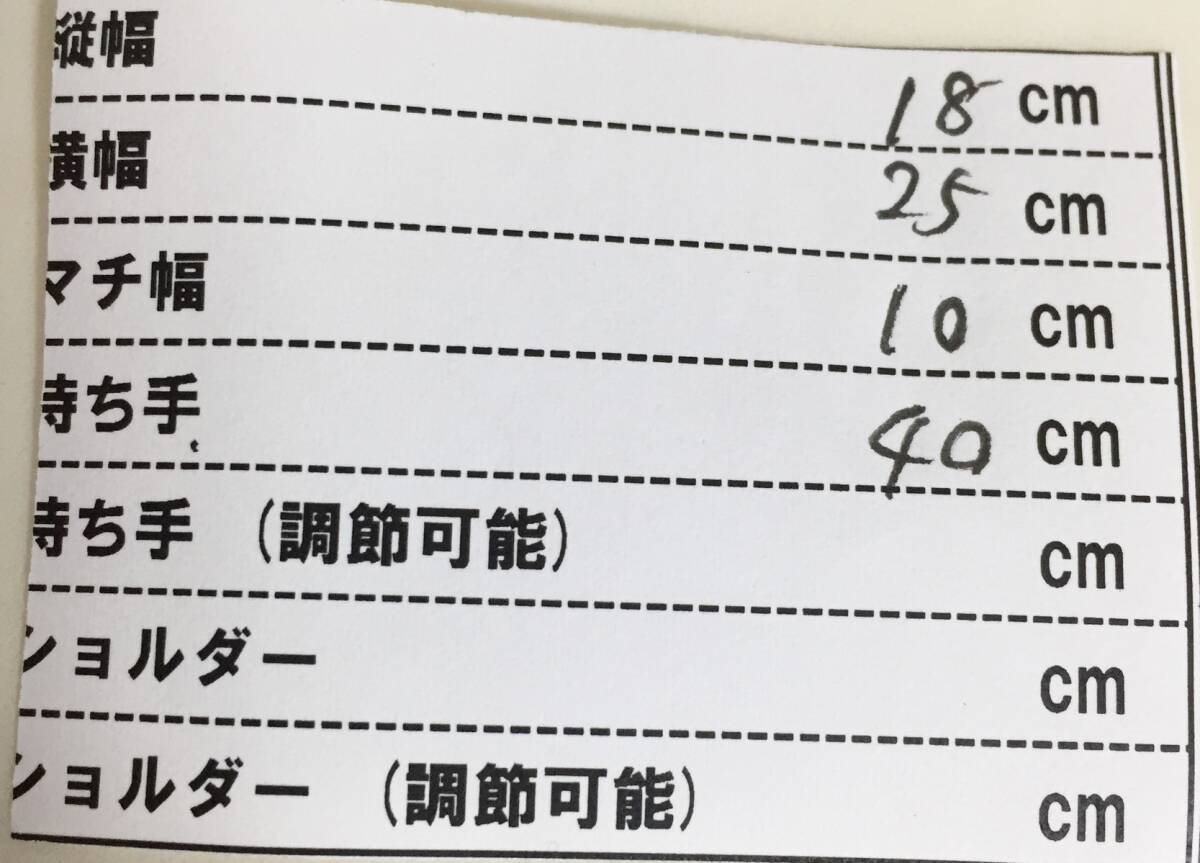 縦幅 18 cm
横幅 25 cm
マチ幅 10 cm
持ち手 40 cm
持ち手 (調節可能) cm
ショルダー cm
ショルダー (調節可能) cm